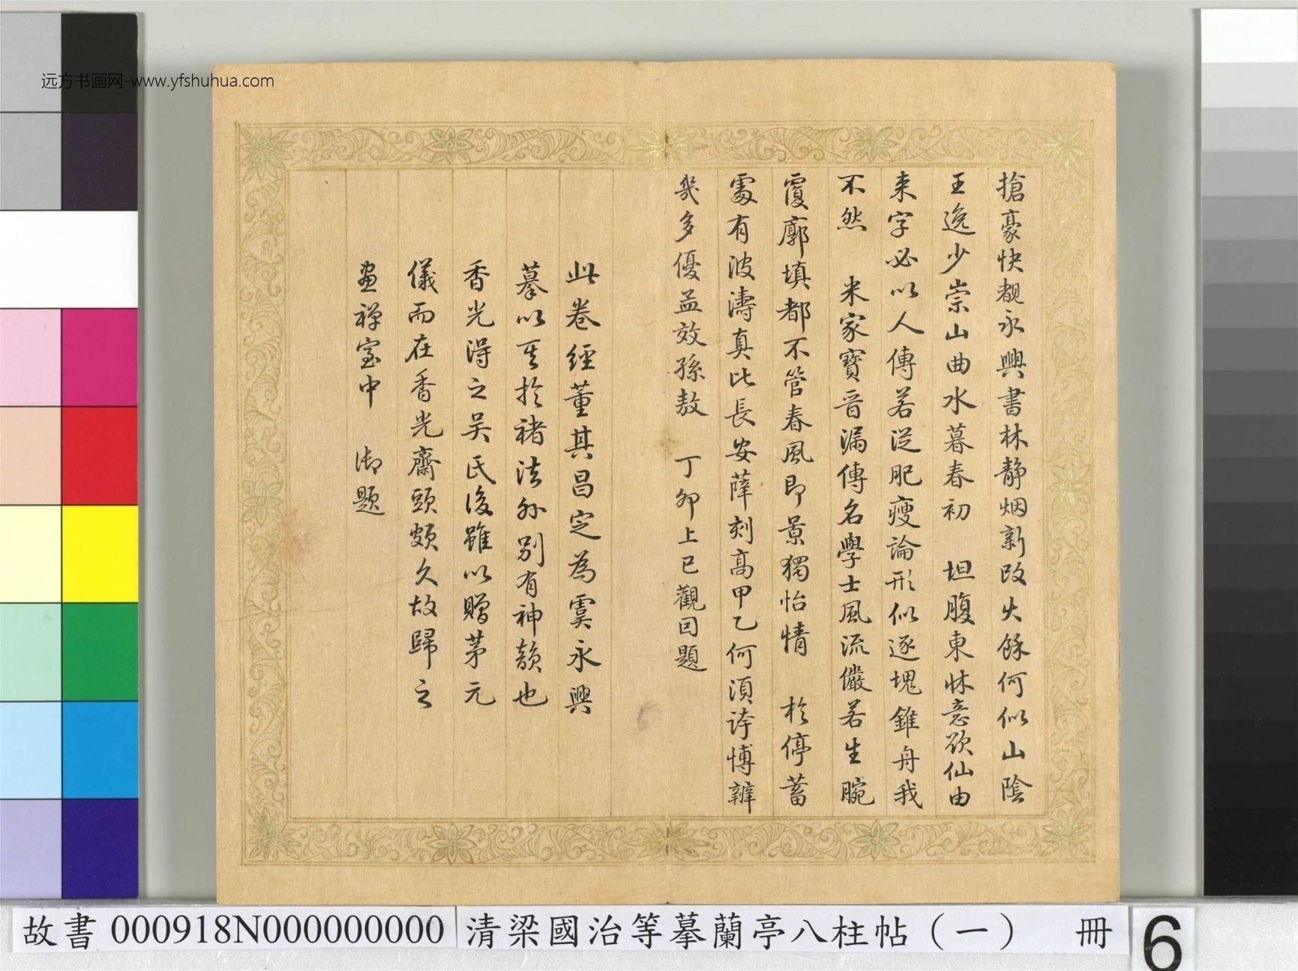 远方书画网-www.yfshuhua.com
搶豪快覩永興書林静烟新改火餘何似山陰
王逸少崇山曲水暮春初　坦腹東牀意欲仙由
来字必以人傳若從肥瘦論形似逐塊錐舟我
不然　米家寶晋漏傳名學士風流儼若生腕
覆廓填都不管春風即景獨怡情　於停蓄
處有波濤真比長安薛刻高甲乙何須誇博辨
幾多優孟效孫敖　丁卯上巳觀因題
此卷經董其昌定為虞永興
摹以其於褚法外别有神韻也
香光得之吴氏後雖以贈茅元
儀而在香光齋頭頗久故歸之
畫禪室中　御題
故書 000918N000000000 清梁國治等摹蘭亭八柱帖（一） 冊 6